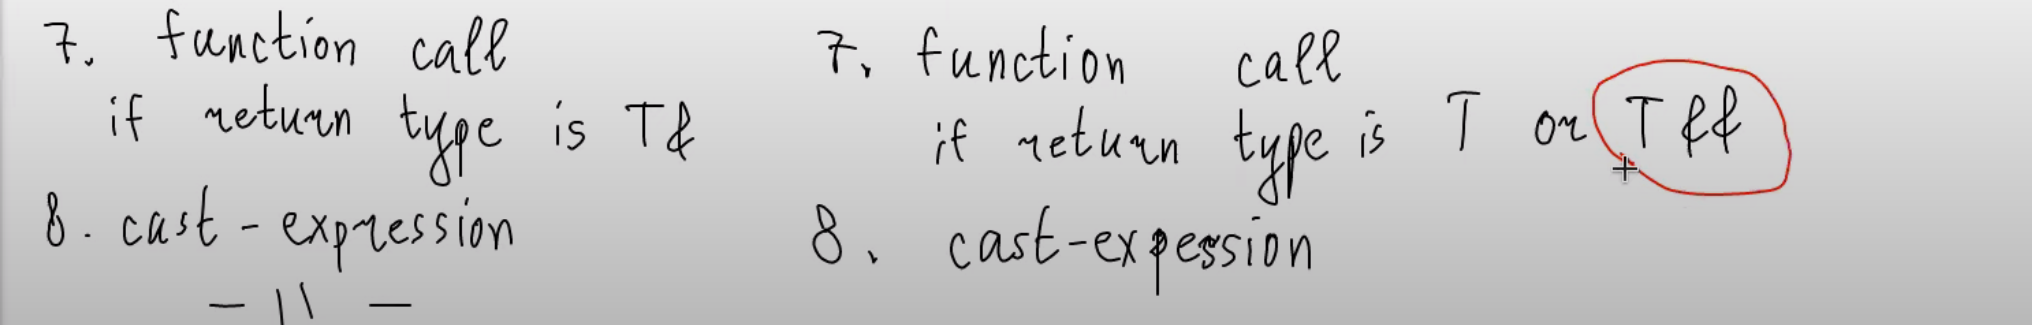 7. function call
if return type is T&
8. cast-expression
— || —
7. function call
if return type is T or T&&
8. cast-expession